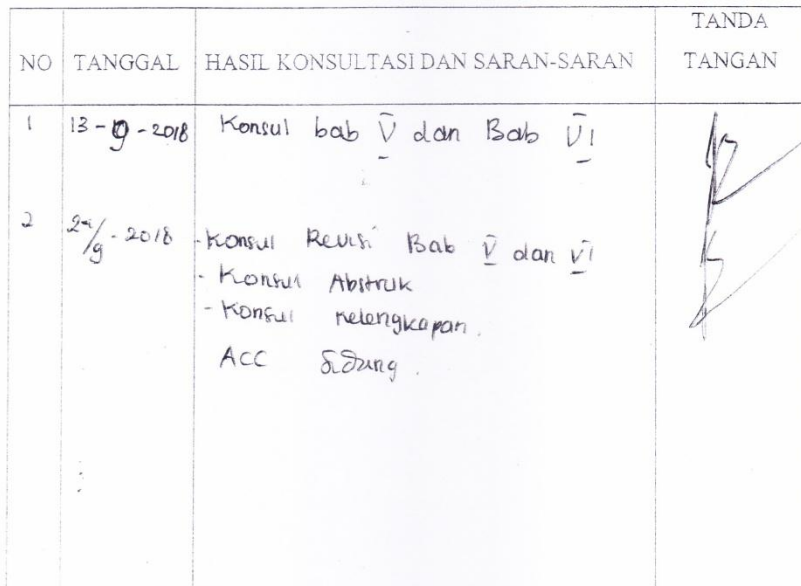 NO TANGGAL HASIL KONSULTASI DAN SARAN-SARAN TANDA TANGAN
1 13-9-2018 Konsul bab V dan Bab VI
2 /9-2018 -Konsul Revisi Bab V dan VI
- Konsul Abstruk
- Konsul Kelengkapan.
ACC Sidang.